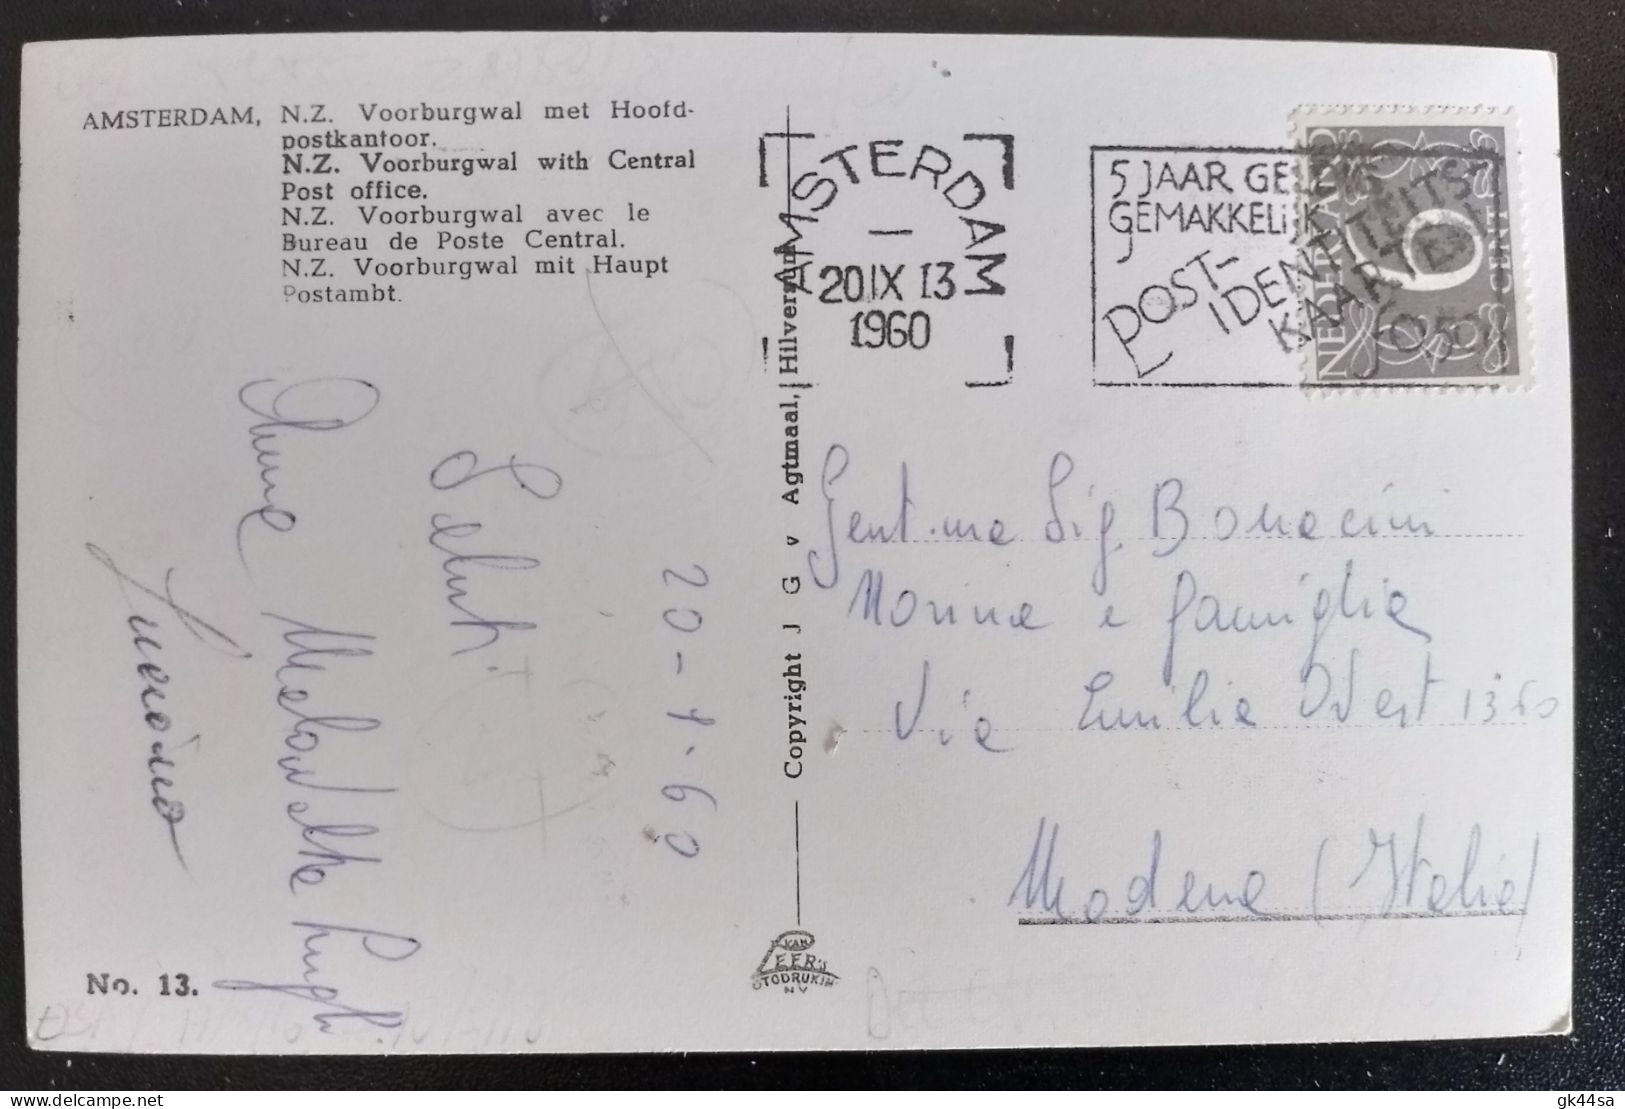 AMSTERDAM, N.Z. Voorburgwal met Hoofd-
postkantoor.
N.Z. Voorburgwal with Central
Post office.
N.Z. Voorburgwal avec le
Bureau de Poste Central.
N.Z. Voorburgwal mit Haupt
Postambt.
AMSTERDAM
A
20 IX 13
1960
5 JAAR GELDIG
GEMAKKELIJK
POST-
IDENTITEITS
KAARTEN
NEDERLAND
6
CENT
Copyright J G v Agtmaal, Hilversum
20-9-60
Saluti
Luciano
Gent.ma Sig. Bonacini
Norina e famiglia
Via Emilia Ovest 1360
Modena (Italia)
No. 13.
VAN
LEER's
FOTODRUKIN.
NV
delcampe.net
gk44sa